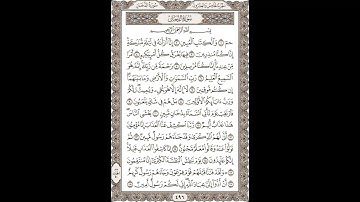 سُورَةُ الدُّخَانِ
الجُزْءُ الخَامِسُ وَالعِشْرُونَ
سُورَةُ الدُّخَانِ
بِسْمِ ٱللَّهِ ٱلرَّحْمَٰنِ ٱلرَّحِيمِ
حمٓ ١ وَٱلْكِتَٰبِ ٱلْمُبِينِ ٢ إِنَّآ أَنزَلْنَٰهُ فِى لَيْلَةٍ مُّبَٰرَكَةٍ
إِنَّا كُنَّا مُنذِرِينَ ٣ فِيهَا يُفْرَقُ كُلُّ أَمْرٍ حَكِيمٍ ٤ أَمْرًا
مِّنْ عِندِنَآ إِنَّا كُنَّا مُرْسِلِينَ ٥ رَحْمَةً مِّن رَّبِّكَ إِنَّهُۥ هُوَ
ٱلسَّمِيعُ ٱلْعَلِيمُ ٦ رَبِّ ٱلسَّمَٰوَٰتِ وَٱلْأَرْضِ وَمَا بَيْنَهُمَآ
إِن كُنتُم مُّوقِنِينَ ٧ لَآ إِلَٰهَ إِلَّا هُوَ يُحْىِۦ وَيُمِيتُ رَبُّكُمْ
وَرَبُّ ءَابَآئِكُمُ ٱلْأَوَّلِينَ ٨ بَلْ هُمْ فِى شَكٍّ يَلْعَبُونَ ٩
فَٱرْتَقِبْ يَوْمَ تَأْتِى ٱلسَّمَآءُ بِدُخَانٍ مُّبِينٍ ١٠ يَغْشَى ٱلنَّاسَ
هَٰذَا عَذَابٌ أَلِيمٌ ١١ رَّبَّنَا ٱكْشِفْ عَنَّا ٱلْعَذَابَ إِنَّا مُؤْمِنُونَ
١٢ أَنَّىٰ لَهُمُ ٱلذِّكْرَىٰ وَقَدْ جَآءَهُمْ رَسُولٌ مُّبِينٌ ١٣
ثُمَّ تَوَلَّوْا۟ عَنْهُ وَقَالُوا۟ مُعَلَّمٌ مَّجْنُونٌ ١٤ إِنَّا كَاشِفُوا۟ ٱلْعَذَابِ قَلِيلًا
إِنَّكُمْ عَآئِدُونَ ١٥ يَوْمَ نَبْطِشُ ٱلْبَطْشَةَ ٱلْكُبْرَىٰٓ إِنَّا مُنتَقِمُونَ
١٦ وَلَقَدْ فَتَنَّا قَبْلَهُمْ قَوْمَ فِرْعَوْنَ وَجَآءَهُمْ رَسُولٌ كَرِيمٌ
١٧ أَنْ أَدُّوٓا۟ إِلَىَّ عِبَادَ ٱللَّهِ إِنِّى لَكُمْ رَسُولٌ أَمِينٌ ١٨
٤٩٦